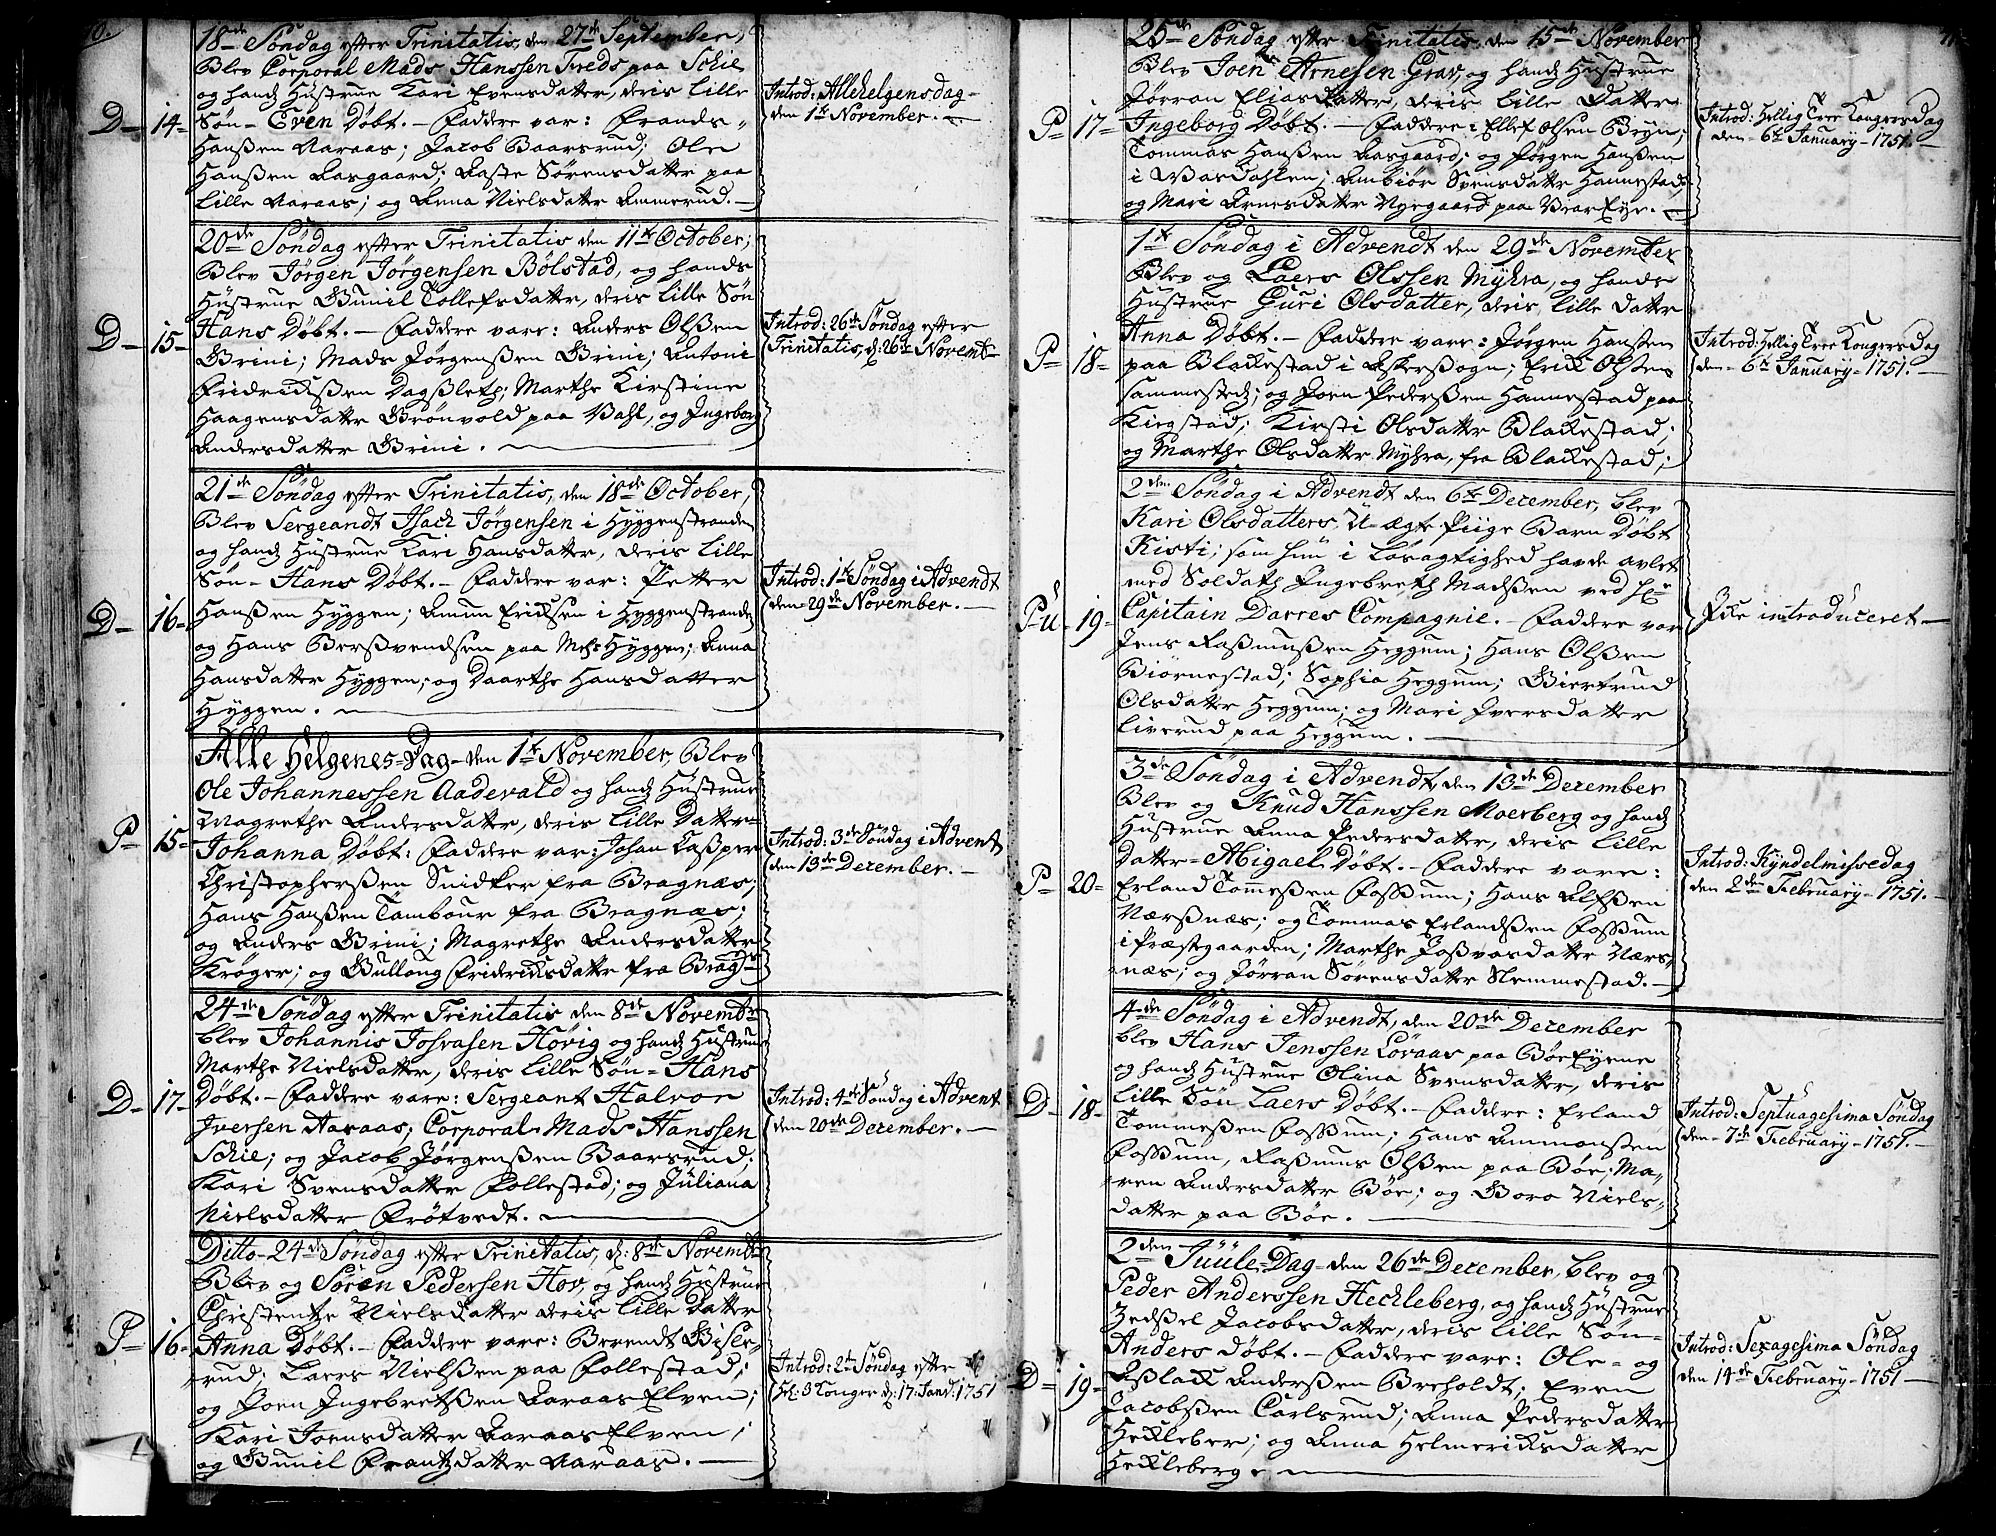 10.
18de Söndag efter Trinitatis, den 27de September,
Blev Corporal Mads Hanssen Freds paa Schie
og hands Hustrue Kari Evensdatter, deris lille
Søn- Even Døbt. - Faddere var: Frands
Hanßen Aaraas; Jacob Baarsrud; Ole
Hanßen Aasgaard; Aaste Sörensdatter paa
Lille Aaraas; og Anna Nielsdatter Ammerud. -
D- 14-
Introd: Allehelgensdag-
den 1te November. -
20de Söndag efter Trinitatis den 11te October;
Blev Jörgen Jörgensen Bölstad, og hands
Hustrue Gunil Tollefsdatter, deris lille Sön
Hans Döbt. - Faddere vare: Anders Olßen
Brini; Mads Jörgenßen Brini; Antoni
Fridrichßen Dagßleth; Marthe Kirstine
Haagensdatter Grönvold paa Vahl, og Ingeborg
Andersdatter Brini.
D- 15-
Introd: 26de Söndag efter
Trinitatis, d: 26de Novembr
21de Söndag efter Trinitatis, den 18de October,
Blev Sergeandt Isach Jörgensen i Hyggenstranden
og hands Hustrue Kari Hansdatter, deris lille
Søn- Hans Döbt. - Faddere var: Petter
Hanßen Hyggen; Amun Ericksen i Hyggenstranden
og Hans Berßvendsen paa Hyggen; Anna
Hansdatter Hyggen; og Daarthe Hansdatter
Hyggen.
D- 16-
Introd: 1te Söndag i Advendt
den 29de November. -
Alle Helgenes-Dag- den 1te November, Blev
Ole Johannessen Aadevald og hands Hustrue
Magrethe Andersdatter, deris lille Datter-
Johanna Döbt: Faddere var: Johan Casper
Christopherßen Snidker fra Bragnæs;
Hans Hanßen Tambour fra Bragnæs;
og Anders Brini; Magrethe Andersdatter
Kröger; og Gullaug Fridrichsdatter fra Brag-
P- 15-
Introd: 3de Söndag i Advent
den 13de December. -
24de Söndag efter Trinitatis den 8de Novembr
blev Johannis Josvasen Hövig og hands Hustrue
Marthe Nielsdatter, deris lille Sön- Hans
Döbt. - Faddere vare: Sergeant Halvor
Iversen Aaraas; Corporal Mads Hanssen
Schie; og Jacob Jörgenßen Baarsrud;
Kari Svensdatter Follestad; og Juliana
Nielsdatter Frötvedt.
D- 17-
Introd: 4de Söndag i Advent
den 20de December. -
Ditto- 24de Söndag efter Trinitatis, d: 8de Novembr
Blev og Sören Pedersen Hov, og hands Hustrue
Christentze Nielsdatter deris lille Datter
Anna Döbt. - Faddere vare: Berendt Gisle-
rud; Laers Nielßen paa Follestad;
og Joen Ingebretßen AaraasElven;
Kari Joensdatter AaraasElven;
og Gunil Frantzdatter Aaraas. -
P- 16-
Introd: 2de Söndag efter
Hel: 3 Konger d: 17: Jand: 1751
25de Söndag efter Trinitatis, den 15de November
Blev Joen Arnesen Grav, og hands Hustrue
Jörran Eliasdatter, deris lille Datter
Ingeborg Döbt. - Faddere: Ellef Olsen Bryn;
Tommas Hanßen Aasgaard; og Jörgen Hanßen
i Vasdahlen; Ambiör Svensdatter Hannestad;
og Mari Arnesdatter Nyegaard paa Viar Eye.
P- 17-
Introd: Hellig Tree Kongers Dag
den- 6te January- 1751. -
1te Söndag i Advendt den 29de November
Blev og Laers Olssen Myhra, og hands
Hustrue Guri Olsdatter, deris lille Datter
Anna Döbt. - Faddere vare: Jörgen Hansen
paa Blackestad i Askersogn; Erick Olsen
sammested; og Joen Pederßen Hannestad paa
Kirgstad; Kirsti Olsdatter Blackestad;
og Marthe Olsdatter Myhra, fra Blackestad;
P- 18-
Introd: Hellig Tree Kongers Dag
den- 6te January- 1751. -
2den Söndag i Advendt den 6te December, blev
Kari Olsdatters U-ægte Piige Barn Döbt
Kisti; som hun i Løsagtighed havde avlet
med Soldath Ingebreth Madßen ved Hr
Capitain Darres Compagnie. - Faddere var
Jens Raßmußen Heggum; Hans Olßen
Biörnestad; Sophia Heggum; Giertrud
Olsdatter Heggum; og Mari Iversdatter
Liverud paa Heggum.
P-U- 19-
Icke introduceret-
3de Söndag i Advendt, den 13de December
Blev og Knud Hanssen Moerberg og hands
Hustrue Anna Pedersdatter, deris lille
Datter- Abigael Döbt. - Faddere vare:
Erland Tommeßen Foßum; Hans Alfßen
Nærßnæs; og Tommas Erlandßen Foßum
i Præstgaarden; Marthe Joßvasdatter Nærs-
næs; og Jörran Sörensdatter Slemmestad. -
P- 20-
Introd: Kyndelmissedag
den 2den February- 1751. -
4de Söndag i Advendt, den 20de December
blev Hans Jenssen Löraas paa BöeEyene
og hands Hustrue Olina Svensdatter, deris
lille Sön Laers Döbt. - Faddere: Erland
Tommeßen Foßum; Hans Ammonßen
Foßum, Raßmus Olßen paa Böe; Ma-
ren Andersdatter Böe; og Boro Niels-
datter paa Böe.
D- 18-
Introd: Septuagesima Söndag
den- 7de February- 1751. -
2den Juule-Dag- den 26de December, blev og
Peder Anderssen Heckleberg, og hands Hustrue
Zedsel Jacobsdatter, deris lille Søn-
Anders döbt. - Faddere vare: Ole- og
Aßlack Anderßen Breholdt; Even
Jacobßen Carlsrud; Anna Pedersdatter
Heckleber; og Anna Helmericksdatter
Heckleberg
D- 19-
Introd: Sexagesima Söndag
den 14de February- 1751 -